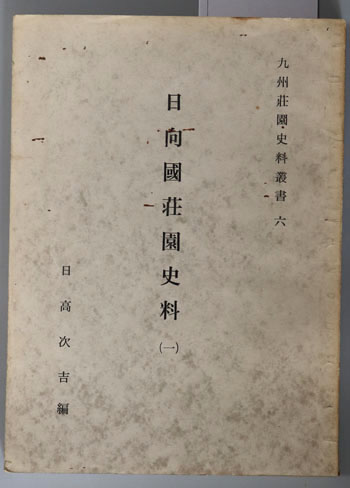 九州荘園・史料叢書 六
日向國荘園史料 (一)
日高次吉編